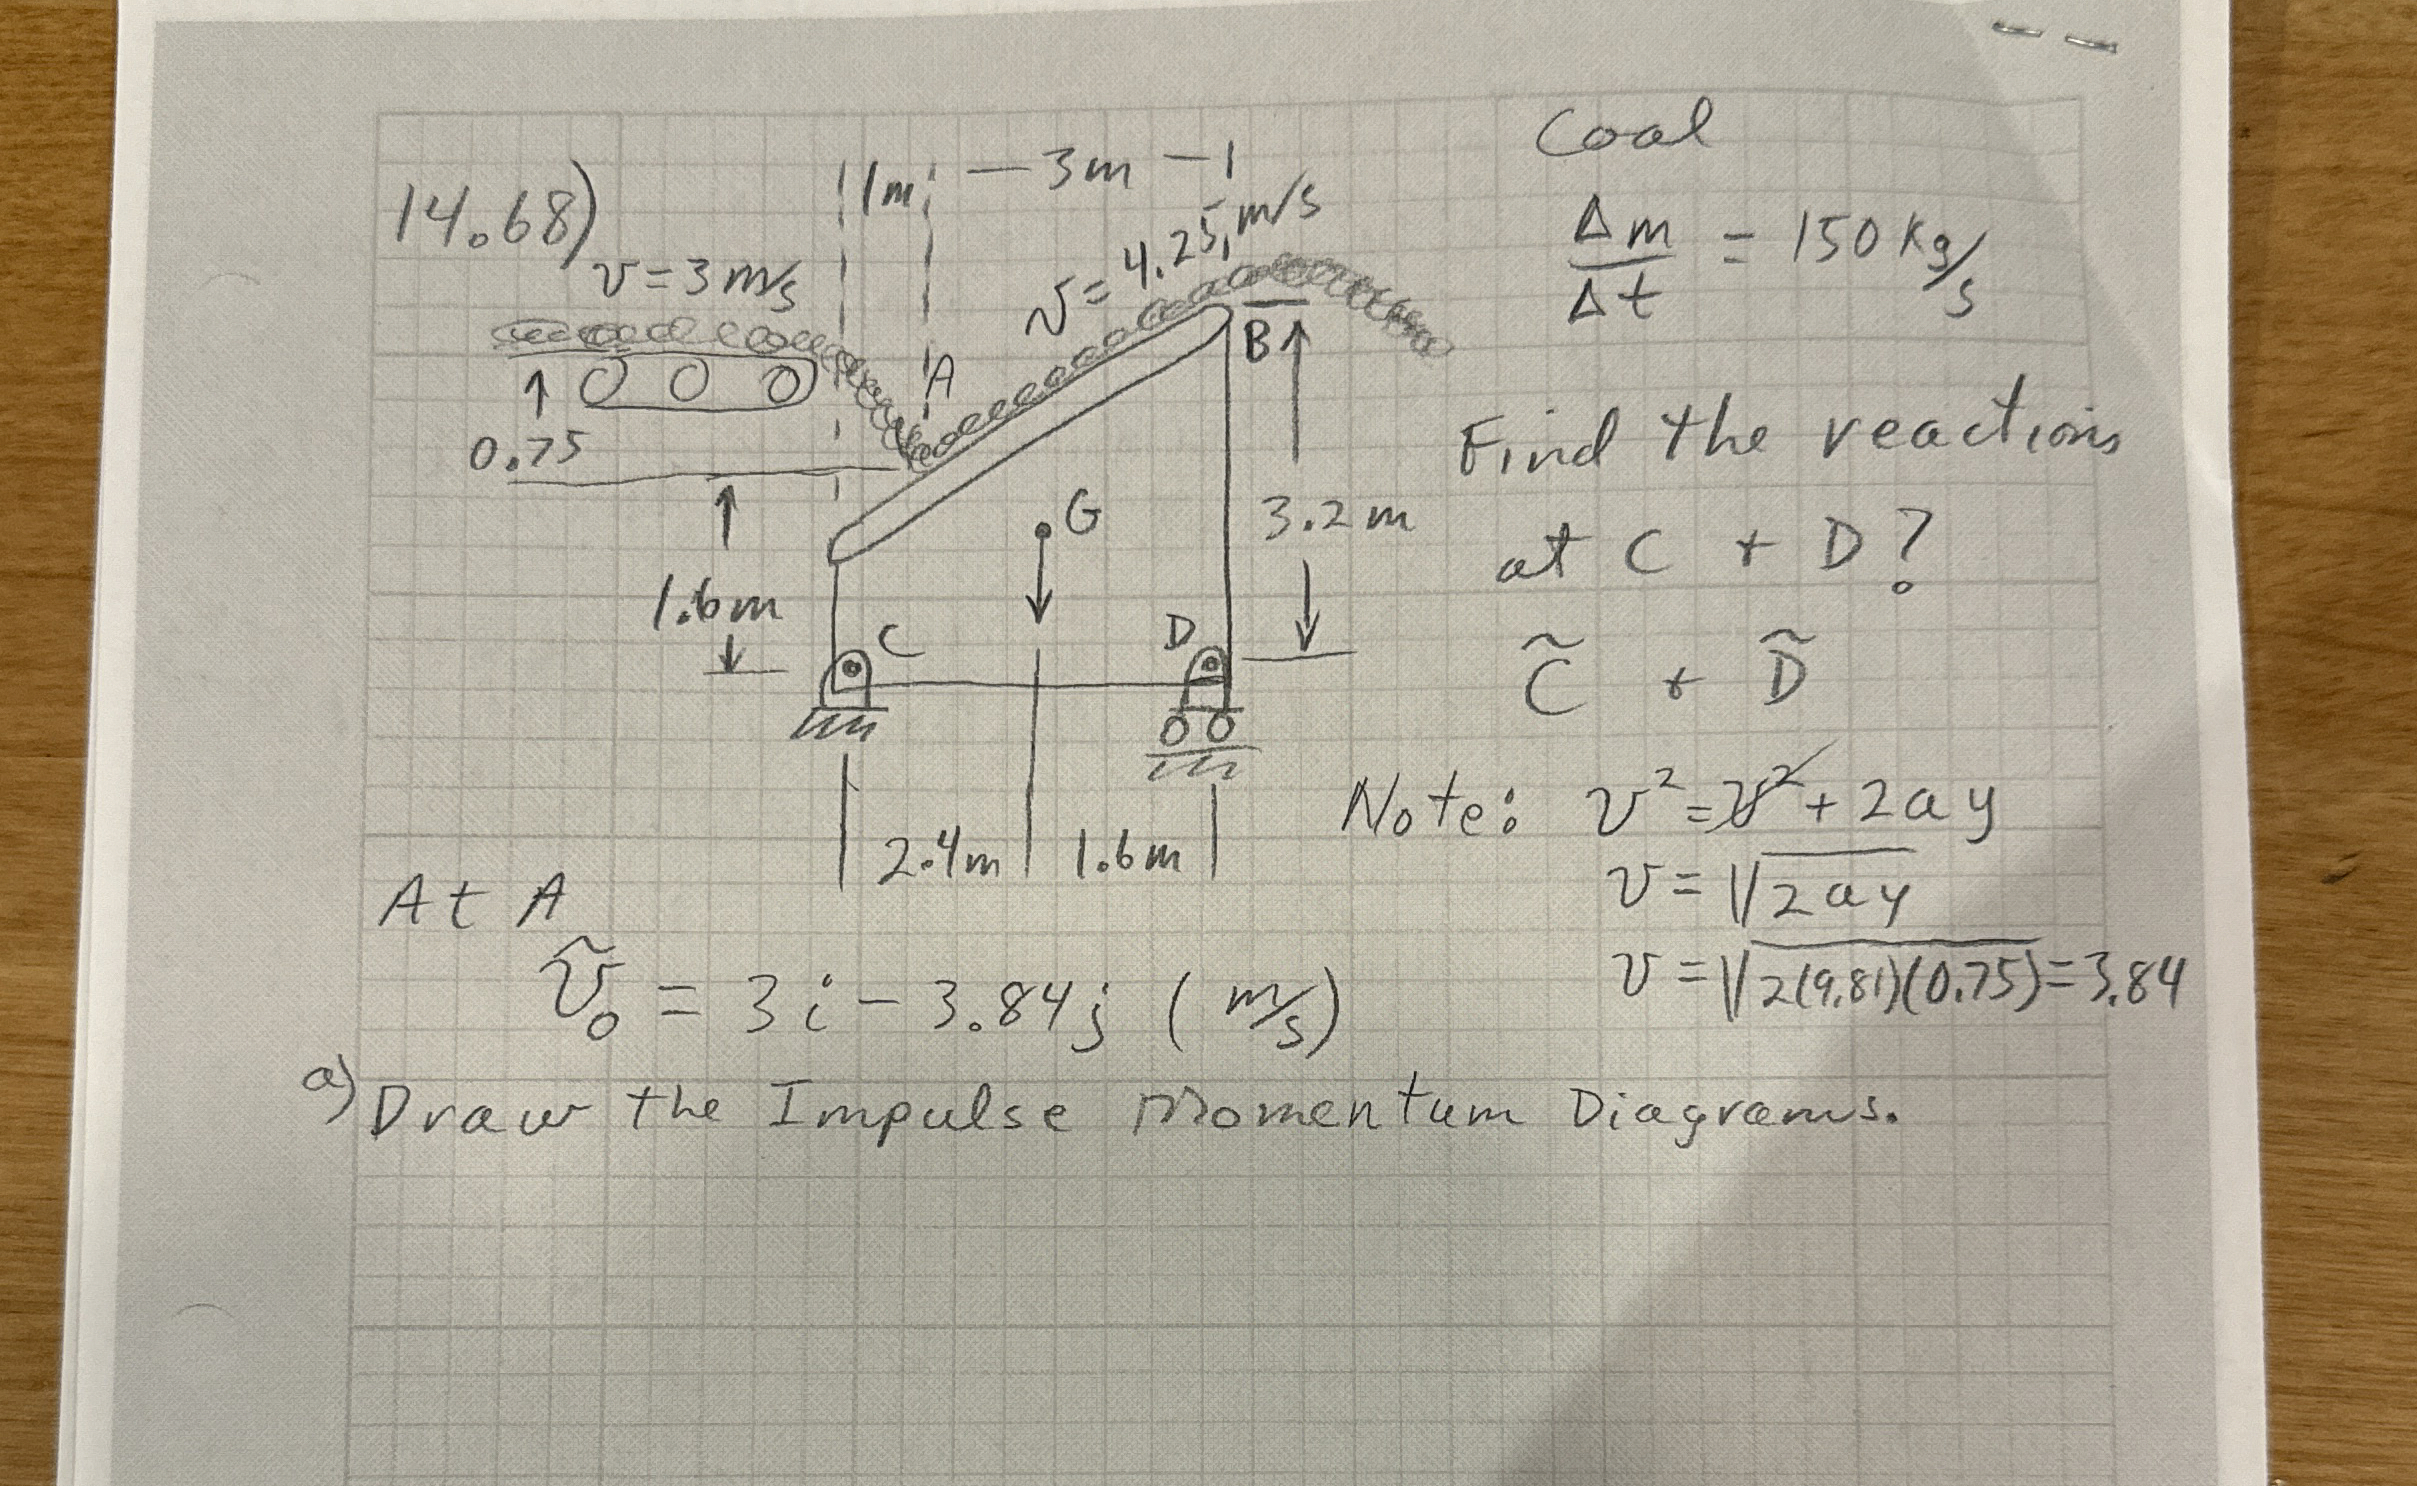 14.68)
|1m| — 3m — |
v = 3 m/s
v = 4.25 m/s
A
B
0.75
G
1.6m
3.2m
C
D
2.4m
1.6m
Coal
Δm/Δt = 150 kg/s
Find the reactions
at C + D?
C̃ + D̃
Note: v² = v² + 2ay
v = √2ay
v = √2(9.81)(0.75) = 3.84
At A
ṽ₀ = 3i - 3.84j (m/s)
a) Draw the Impulse Momentum Diagrams.